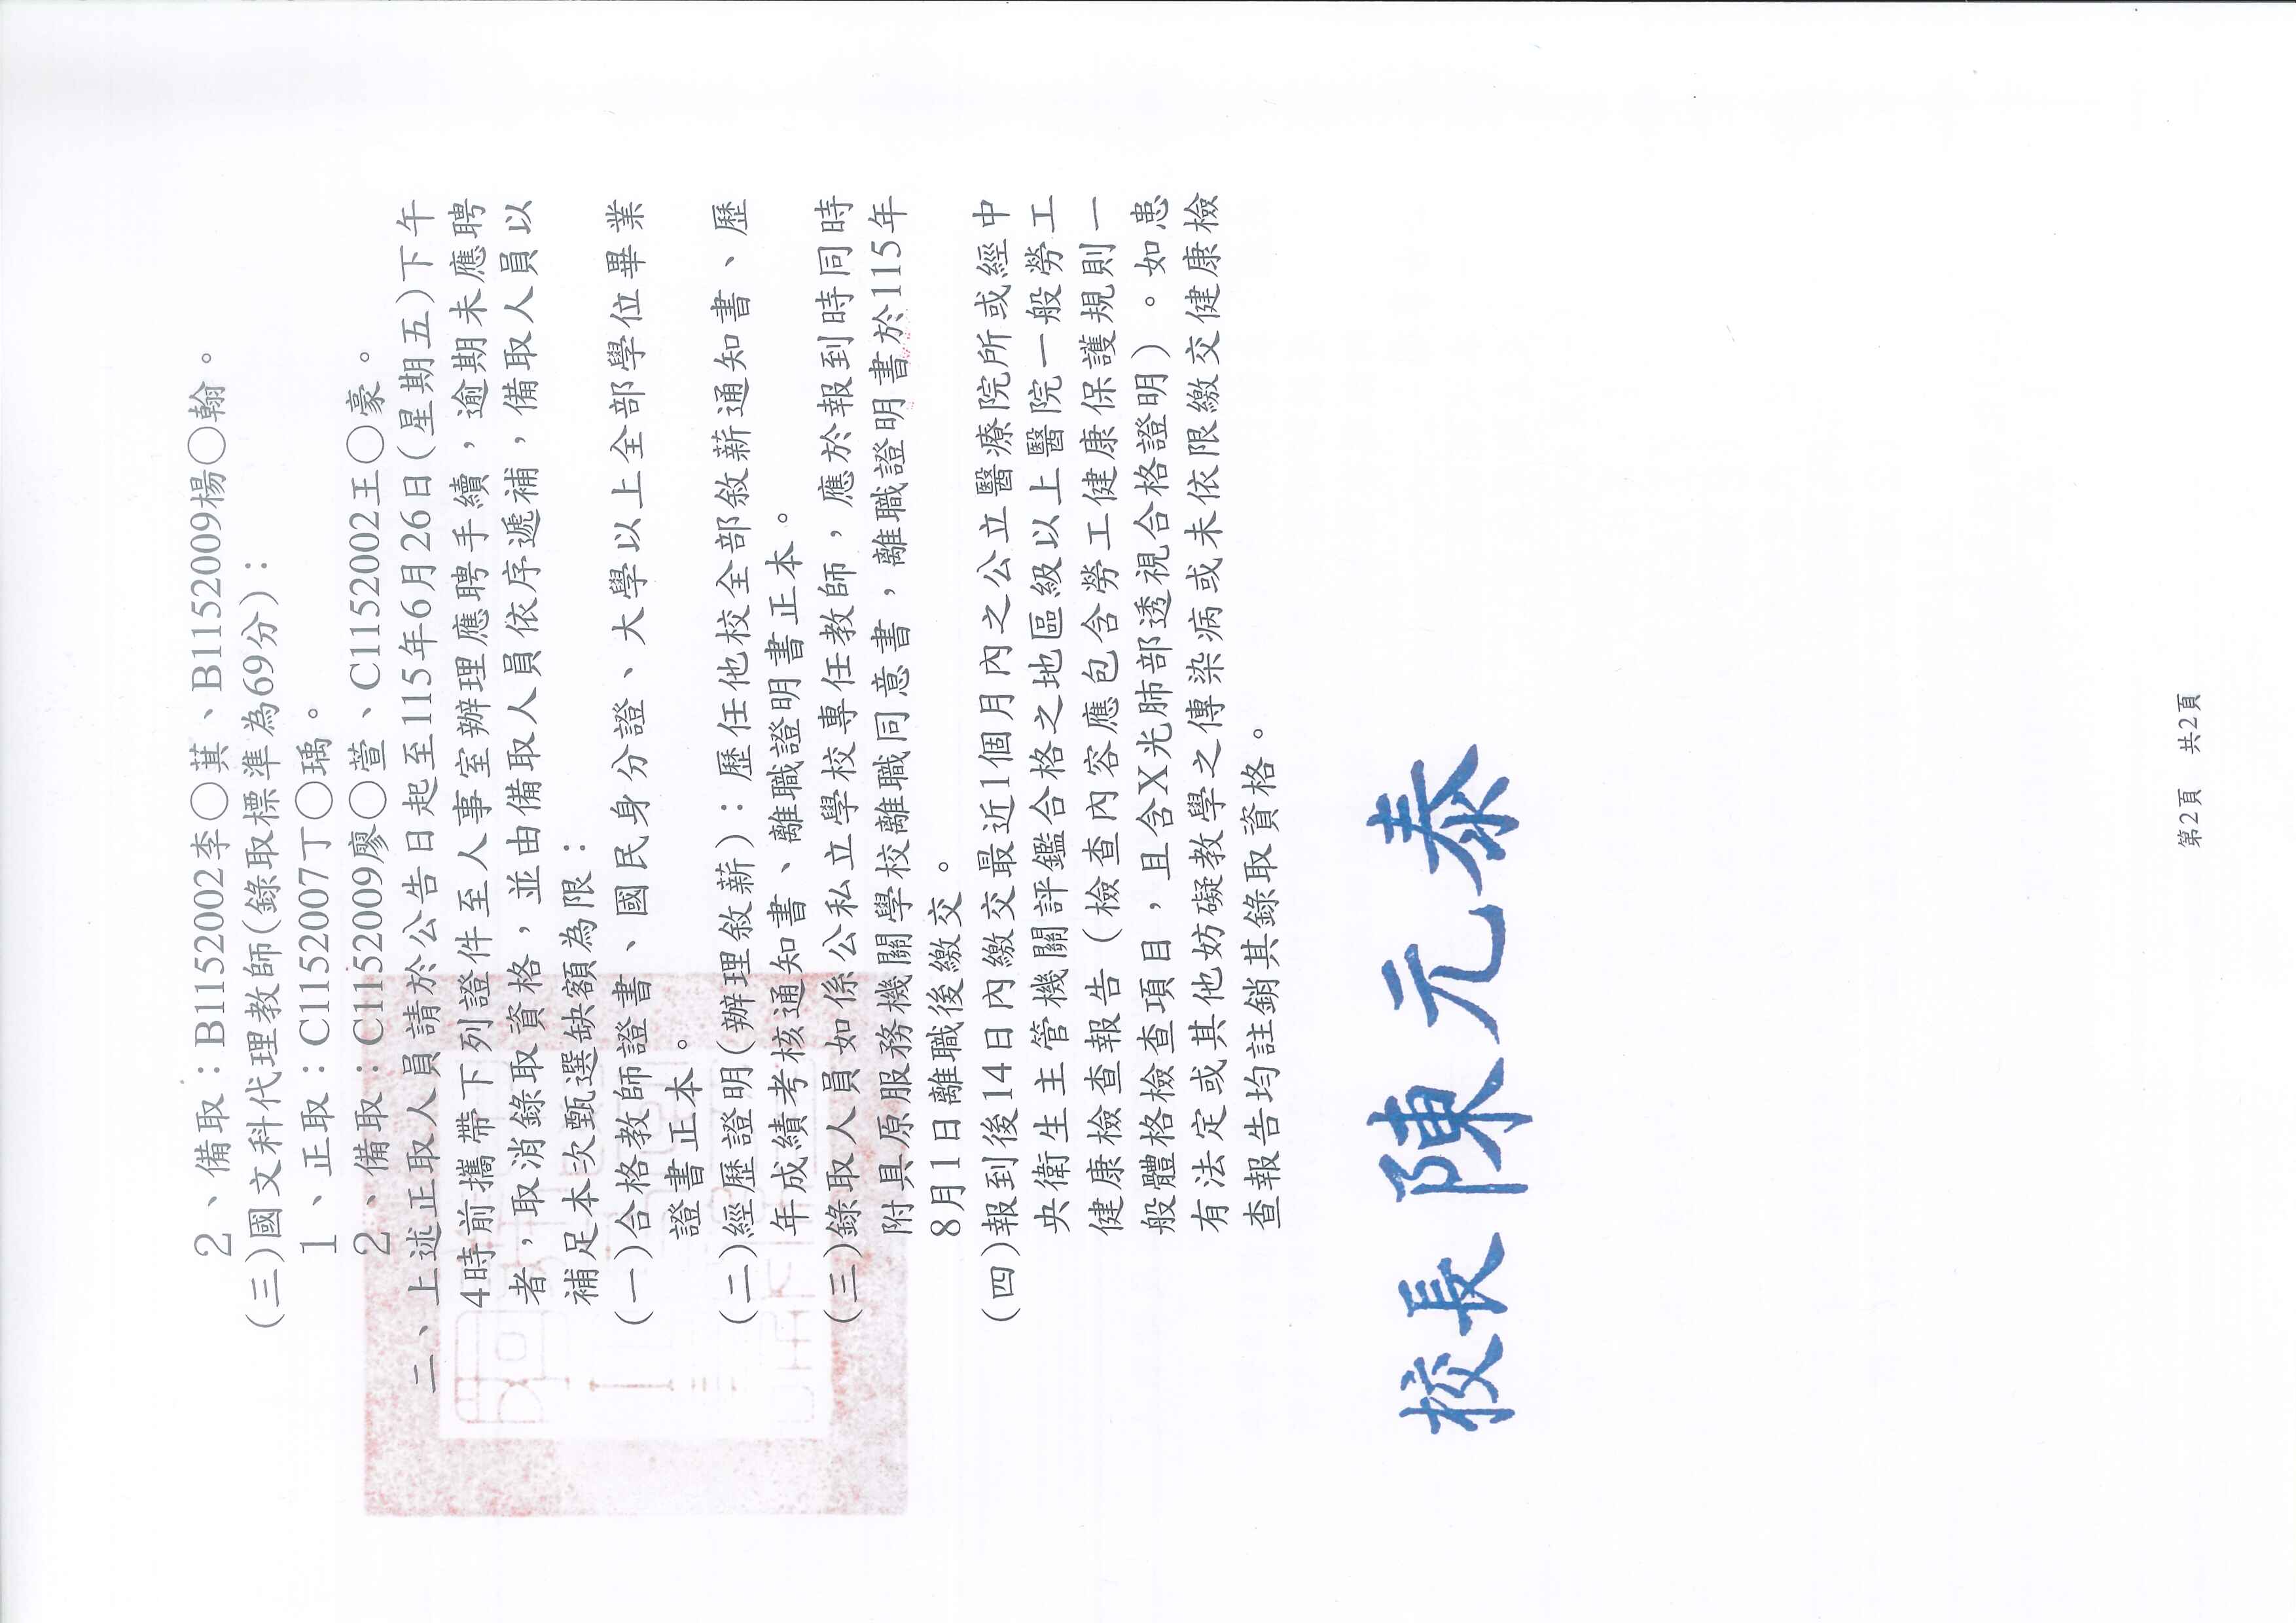 2、備取：B1152002李○萁、B1152009楊○翰。
(三)國文科代理教師(錄取標準為69分)：
1、正取：C1152007丁○瑀。
2、備取：C1152009廖○萱、C1152002王○豪。
二、上述正取人員請於公告日起至115年6月26日(星期五)下午
4時前攜帶下列證件至人事室辦理應聘手續，逾期未應聘
者，取消錄取資格，並由備取人員依序遞補，備取人員以
補足本次甄選缺額為限：
(一)合格教師證書、國民身分證、大學以上全部學位畢業
證書正本。
(二)經歷證明(辦理敘薪)：歷任他校全部敘薪通知書、歷
年成績考核通知書、離職證明書正本。
(三)錄取人員如係公私立學校專任教師，應於報到時同時
附具原服務機關學校離職同意書，離職證明書於115年
8月1日離職後繳交。
(四)報到後14日內繳交最近1個月內之公立醫療院所或經中
央衛生主管機關評鑑合格之地區級以上醫院一般勞工
健康檢查報告（檢查內容應包含勞工健康保護規則一
般體格檢查項目，且含X光肺部透視合格證明）。如患
有法定或其他妨礙教學之傳染病或未依限繳交健康檢
查報告均註銷其錄取資格。
校長陳元泰
第2頁 共2頁